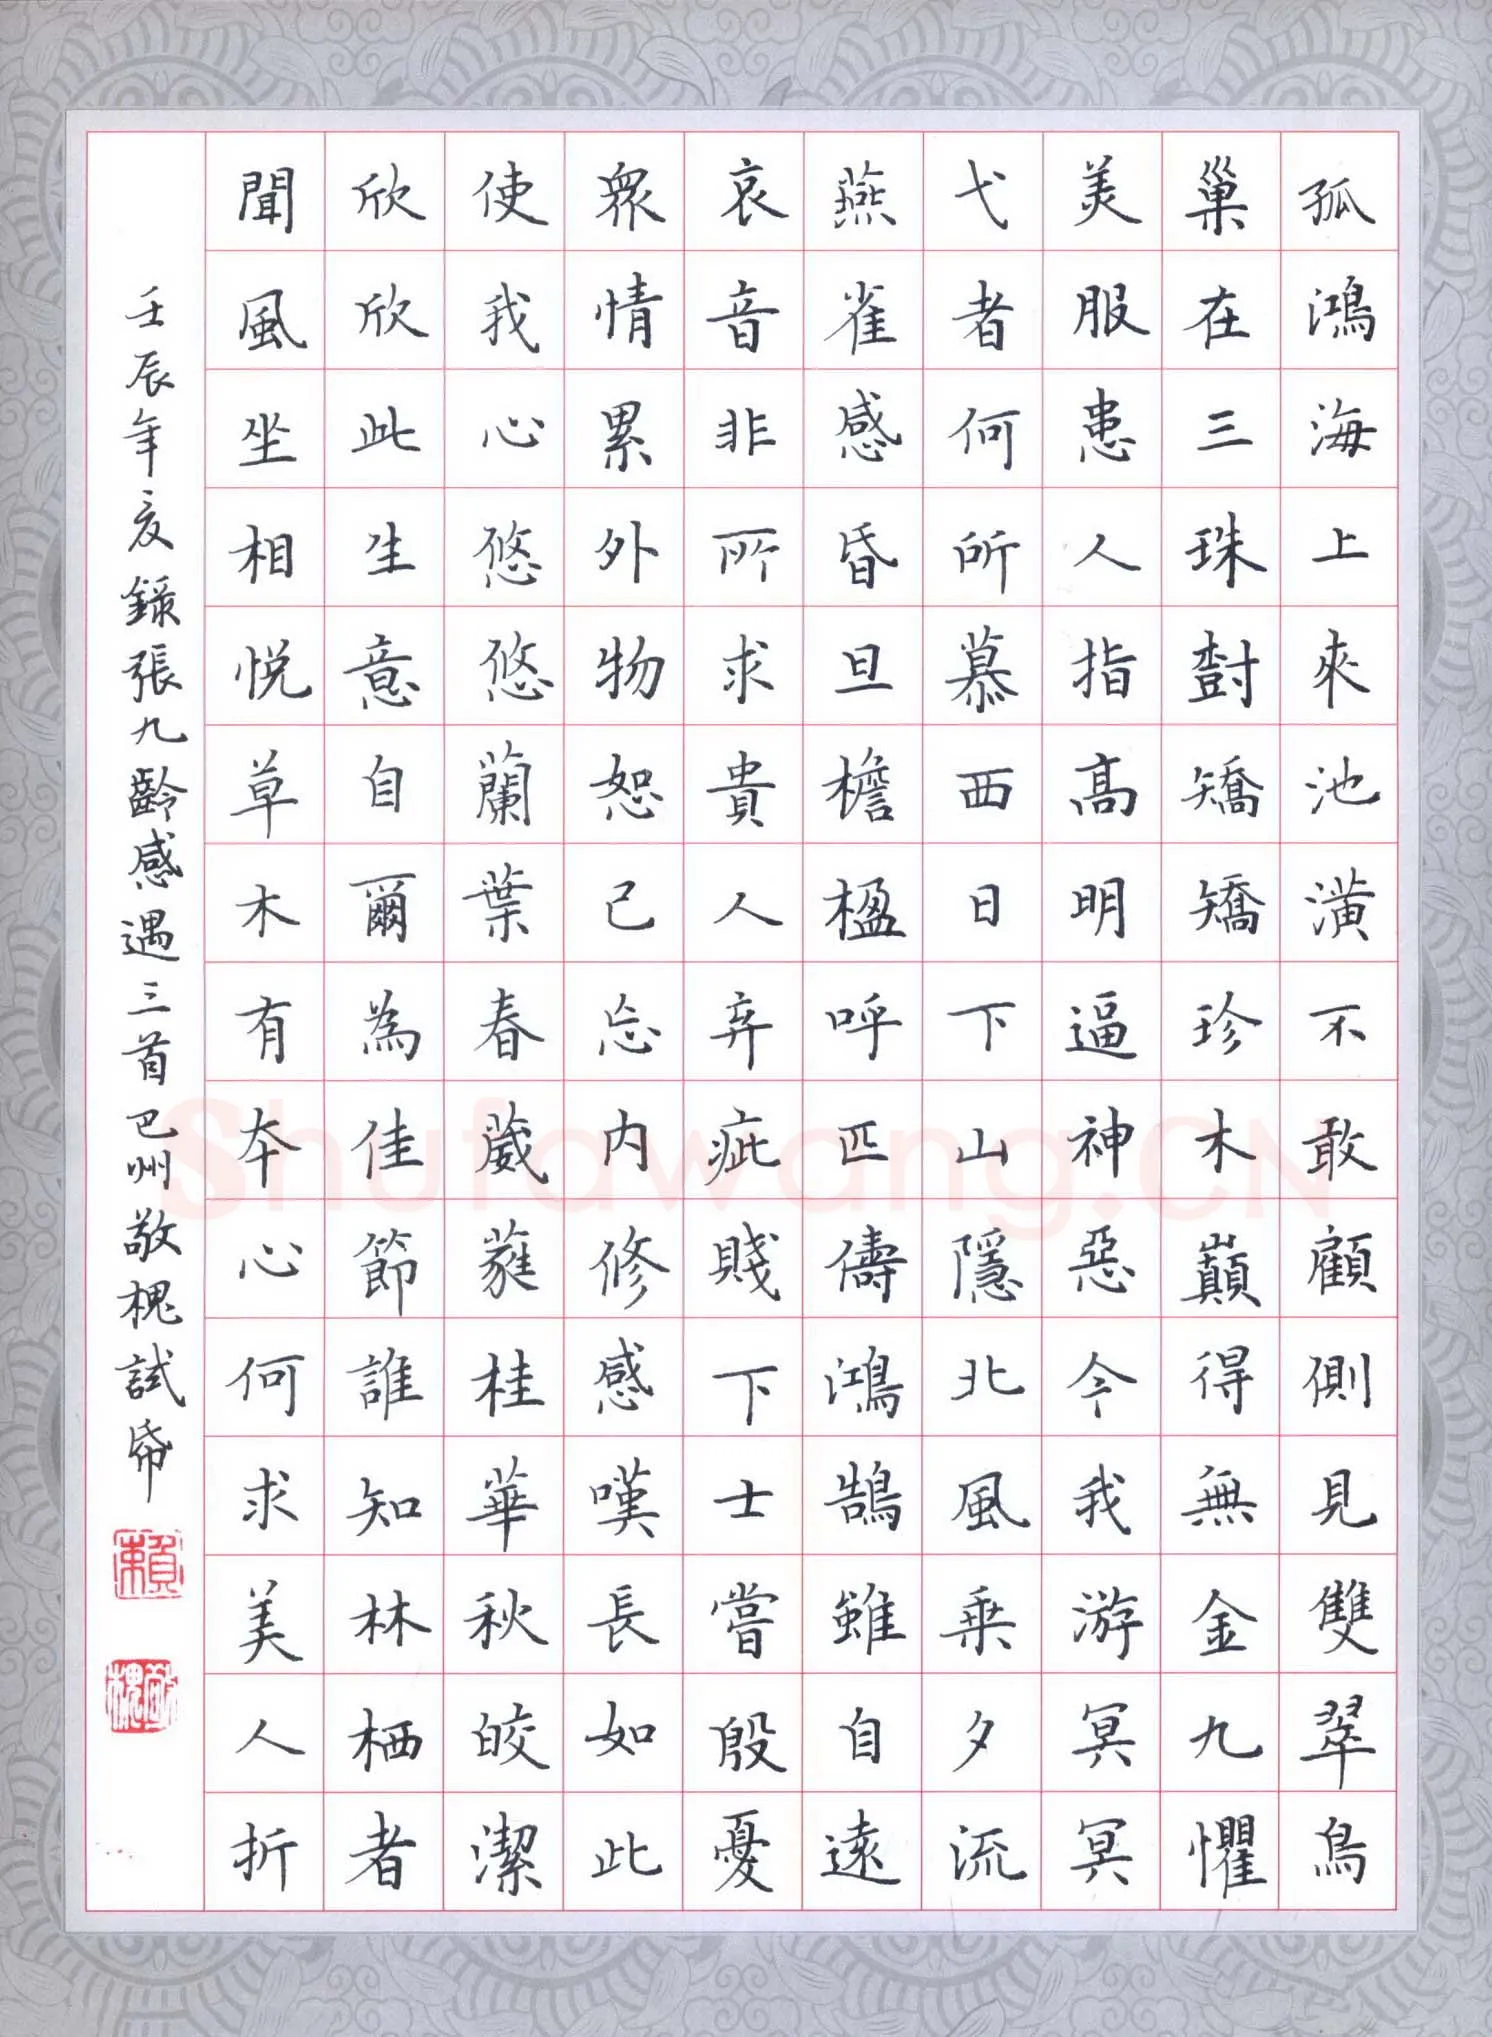 孤鴻海上來池潢不敢顧側見雙翠鳥
巢在三珠對矯矯珍木巔得無金九懼
美服患人指高明逼神惡今我游冥冥
弋者何所慕西日下山隱北風乘夕流
燕雀感昏旦檐楹呼匹儔鴻鵠雖自遠
哀音非所求貴人弃疵賤下士嘗殷憂
衆情累外物恕己忘內修感嘆長如此
使我心悠悠蘭葉春葳蕤桂華秋皎潔
欣欣此生意自爾為佳節誰知林栖者
聞風坐相悅草木有本心何求美人折
壬辰年夏錄張九齡感遇三首巴州敬槐試帋
賴
敬槐
Shufawang.CN